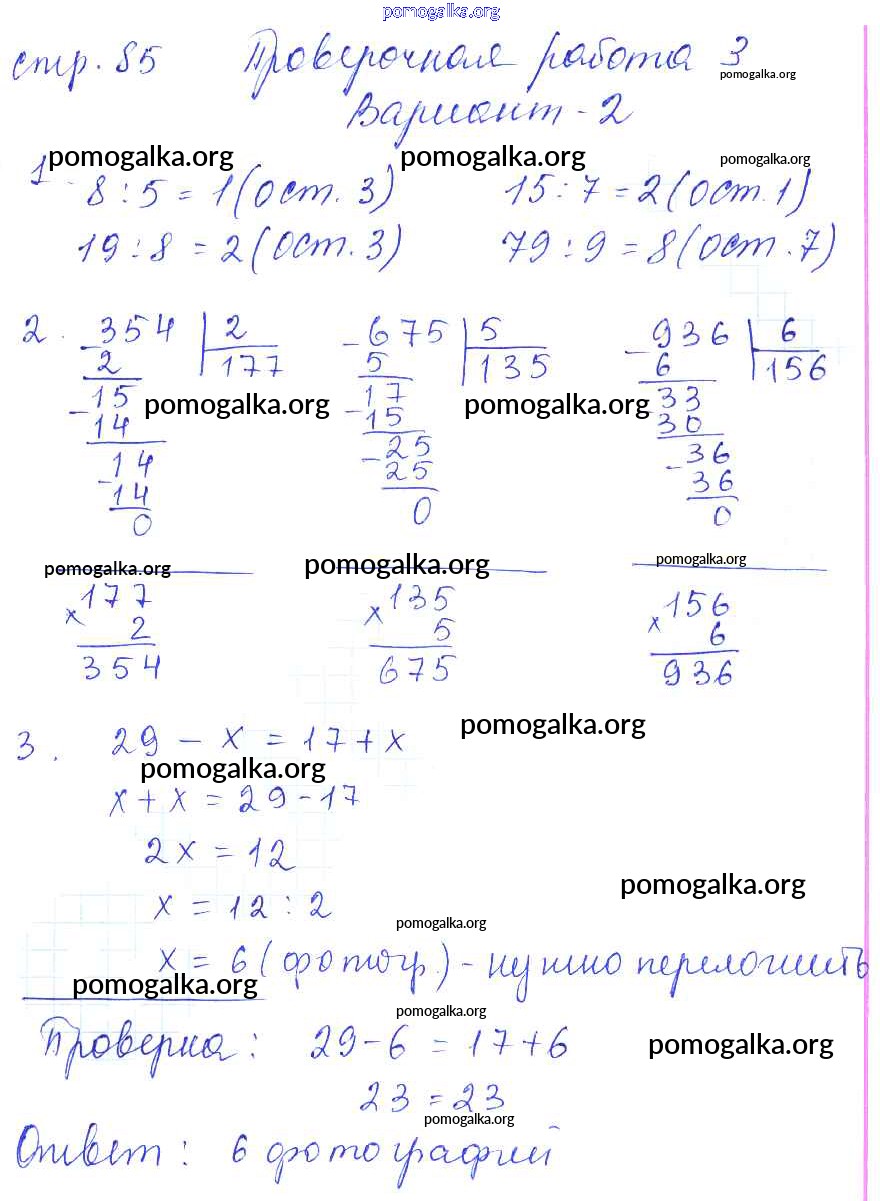 pomogalka.org
стр. 85 Проверочная работа 3
pomogalka.org
Вариант - 2
pomogalka.org pomogalka.org pomogalka.org
1 8 : 5 = 1 (ост. 3) 15 : 7 = 2 (ост. 1)
19 : 8 = 2 (ост. 3) 79 : 9 = 8 (ост. 7)
2. - 354 | 2 - 675 | 5 - 936 | 6
2 177 5 135 6 156
- 15 - 17 33
pomogalka.org pomogalka.org
14 15 30
- 14 - 25 - 36
14 25 36
0 0 0
pomogalka.org pomogalka.org pomogalka.org
x 177 x 135 x 156
2 5 6
354 675 936
pomogalka.org
3. 29 - x = 17 + x
pomogalka.org
x + x = 29 - 17
2x = 12
pomogalka.org
x = 12 : 2
pomogalka.org
x = 6 (фотогр.) - нужно переложить
pomogalka.org
pomogalka.org
Проверка: 29 - 6 = 17 + 6
pomogalka.org
23 = 23
pomogalka.org
Ответ: 6 фотографий